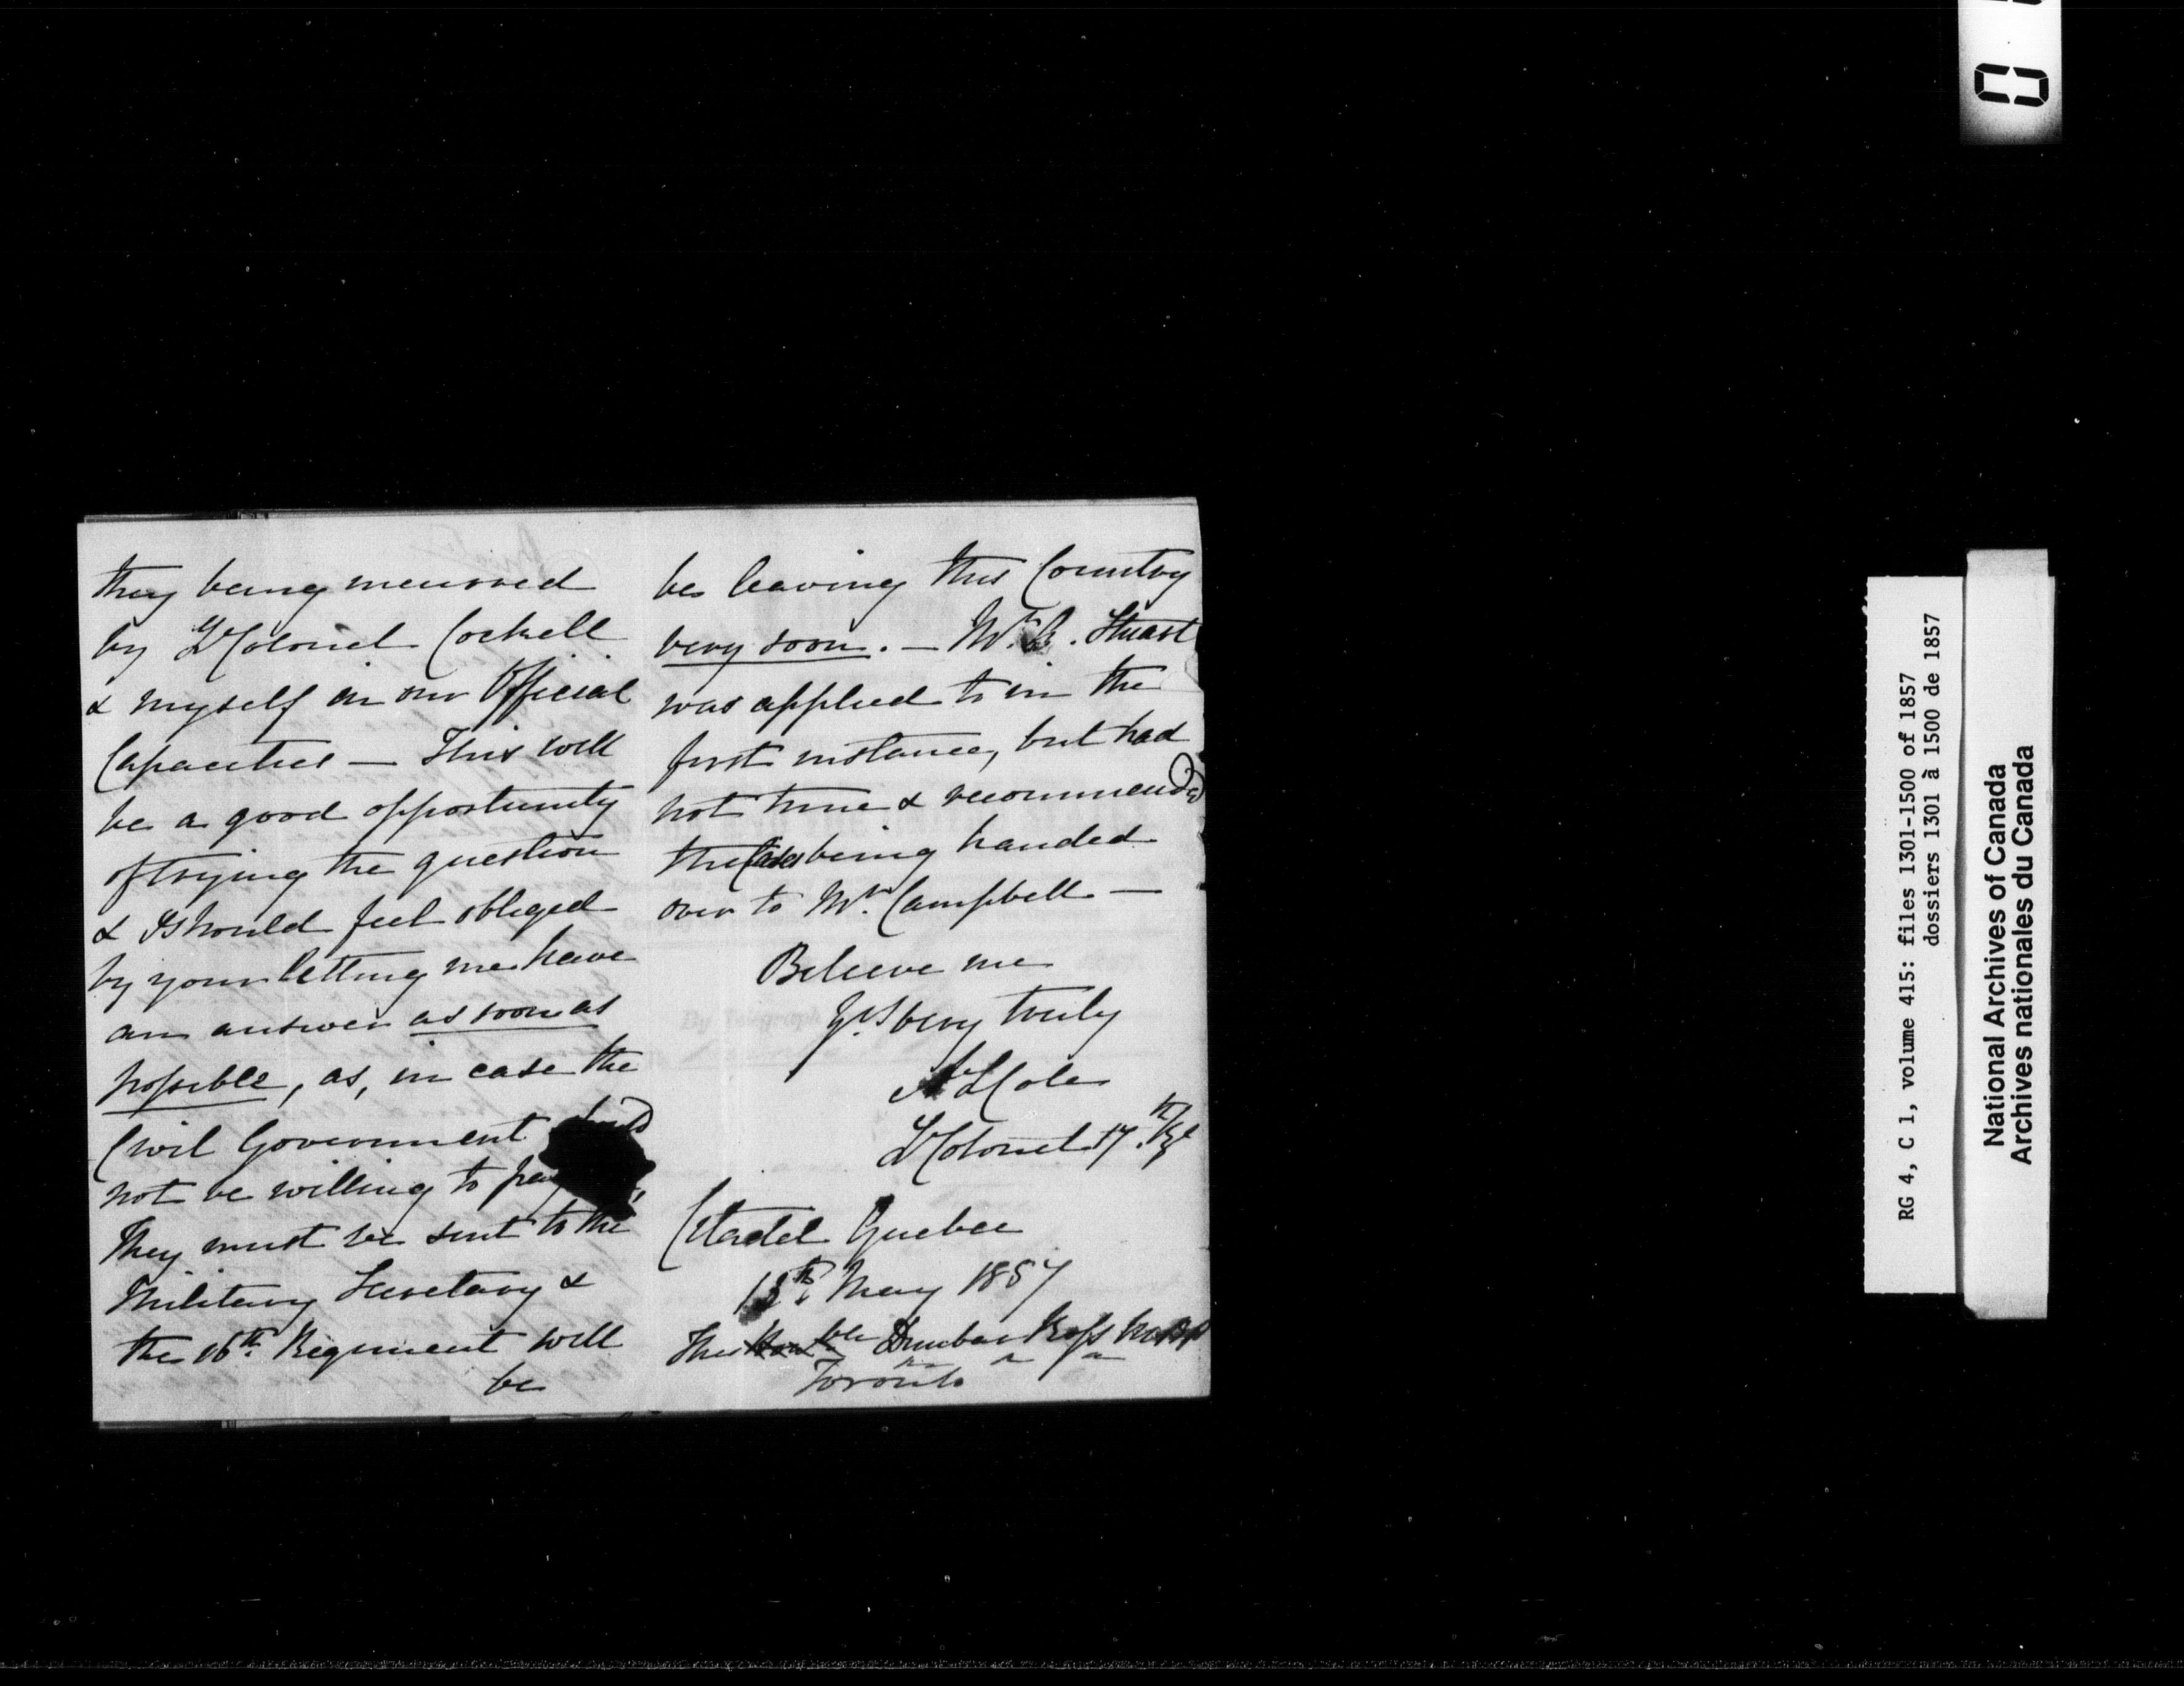 they being incurred
by Lt Colonel Cockell
& myself in our Official
Capacities — This will
be a good opportunity
of trying the question
& I should feel obliged
by your letting me have
an answer as soon as
possible, as, in case the
Civil Government should
not be willing to pay
They must be sent to the
Military Secretary &
the 16th Regiment will
be
be leaving this Country
very soon. — Mr. Stuart
was applied to in the
first instance, but had
not time & recommended
the Case being handed
over to Mr. Campbell —
Believe me
Yrs very truly
A L Cole
Lt Colonel 17th Rgt
Citadel Quebec
May 1857
The Honble Dunbar Ross MPP
Toronto
RG 4, C 1, volume 415: files 1301-1500 of 1857
dossiers 1301 à 1500 de 1857
National Archives of Canada
Archives nationales du Canada